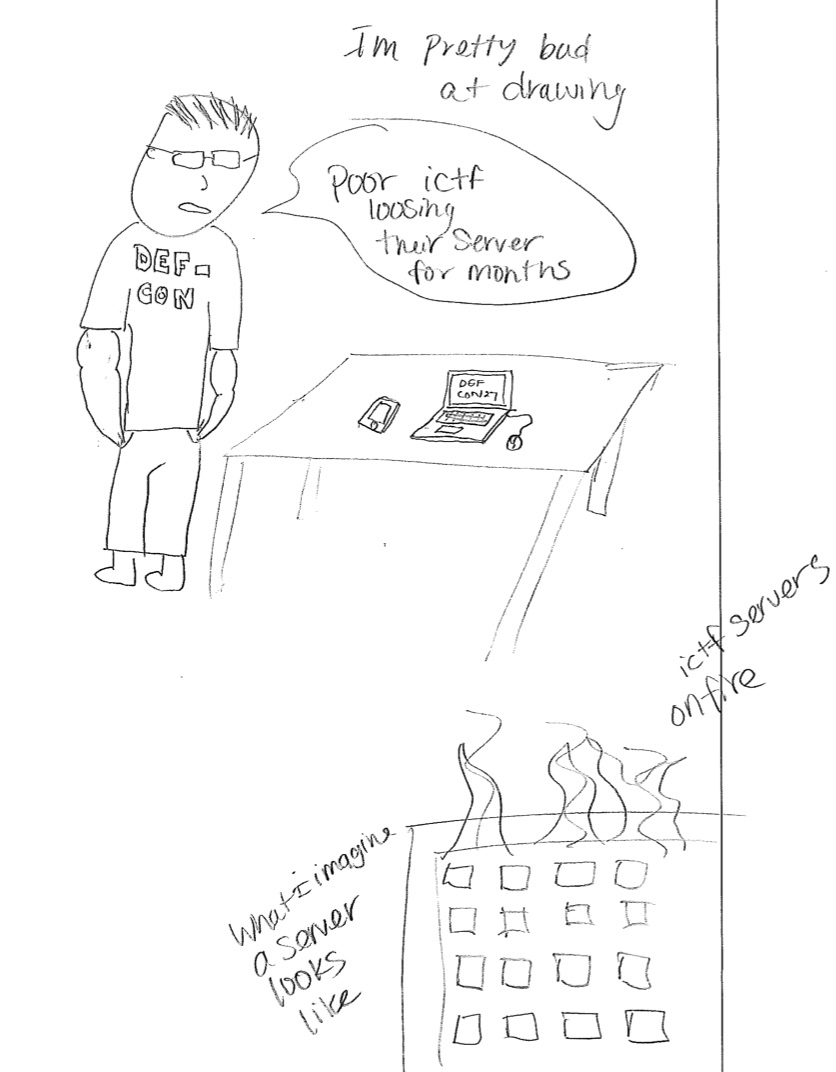 Im pretty bad
at drawing
Poor ictf
loosing
their server
for months
DEF-
CON
DEF
CON27
ictf servers
on fire
What I imagine
a server
looks
like